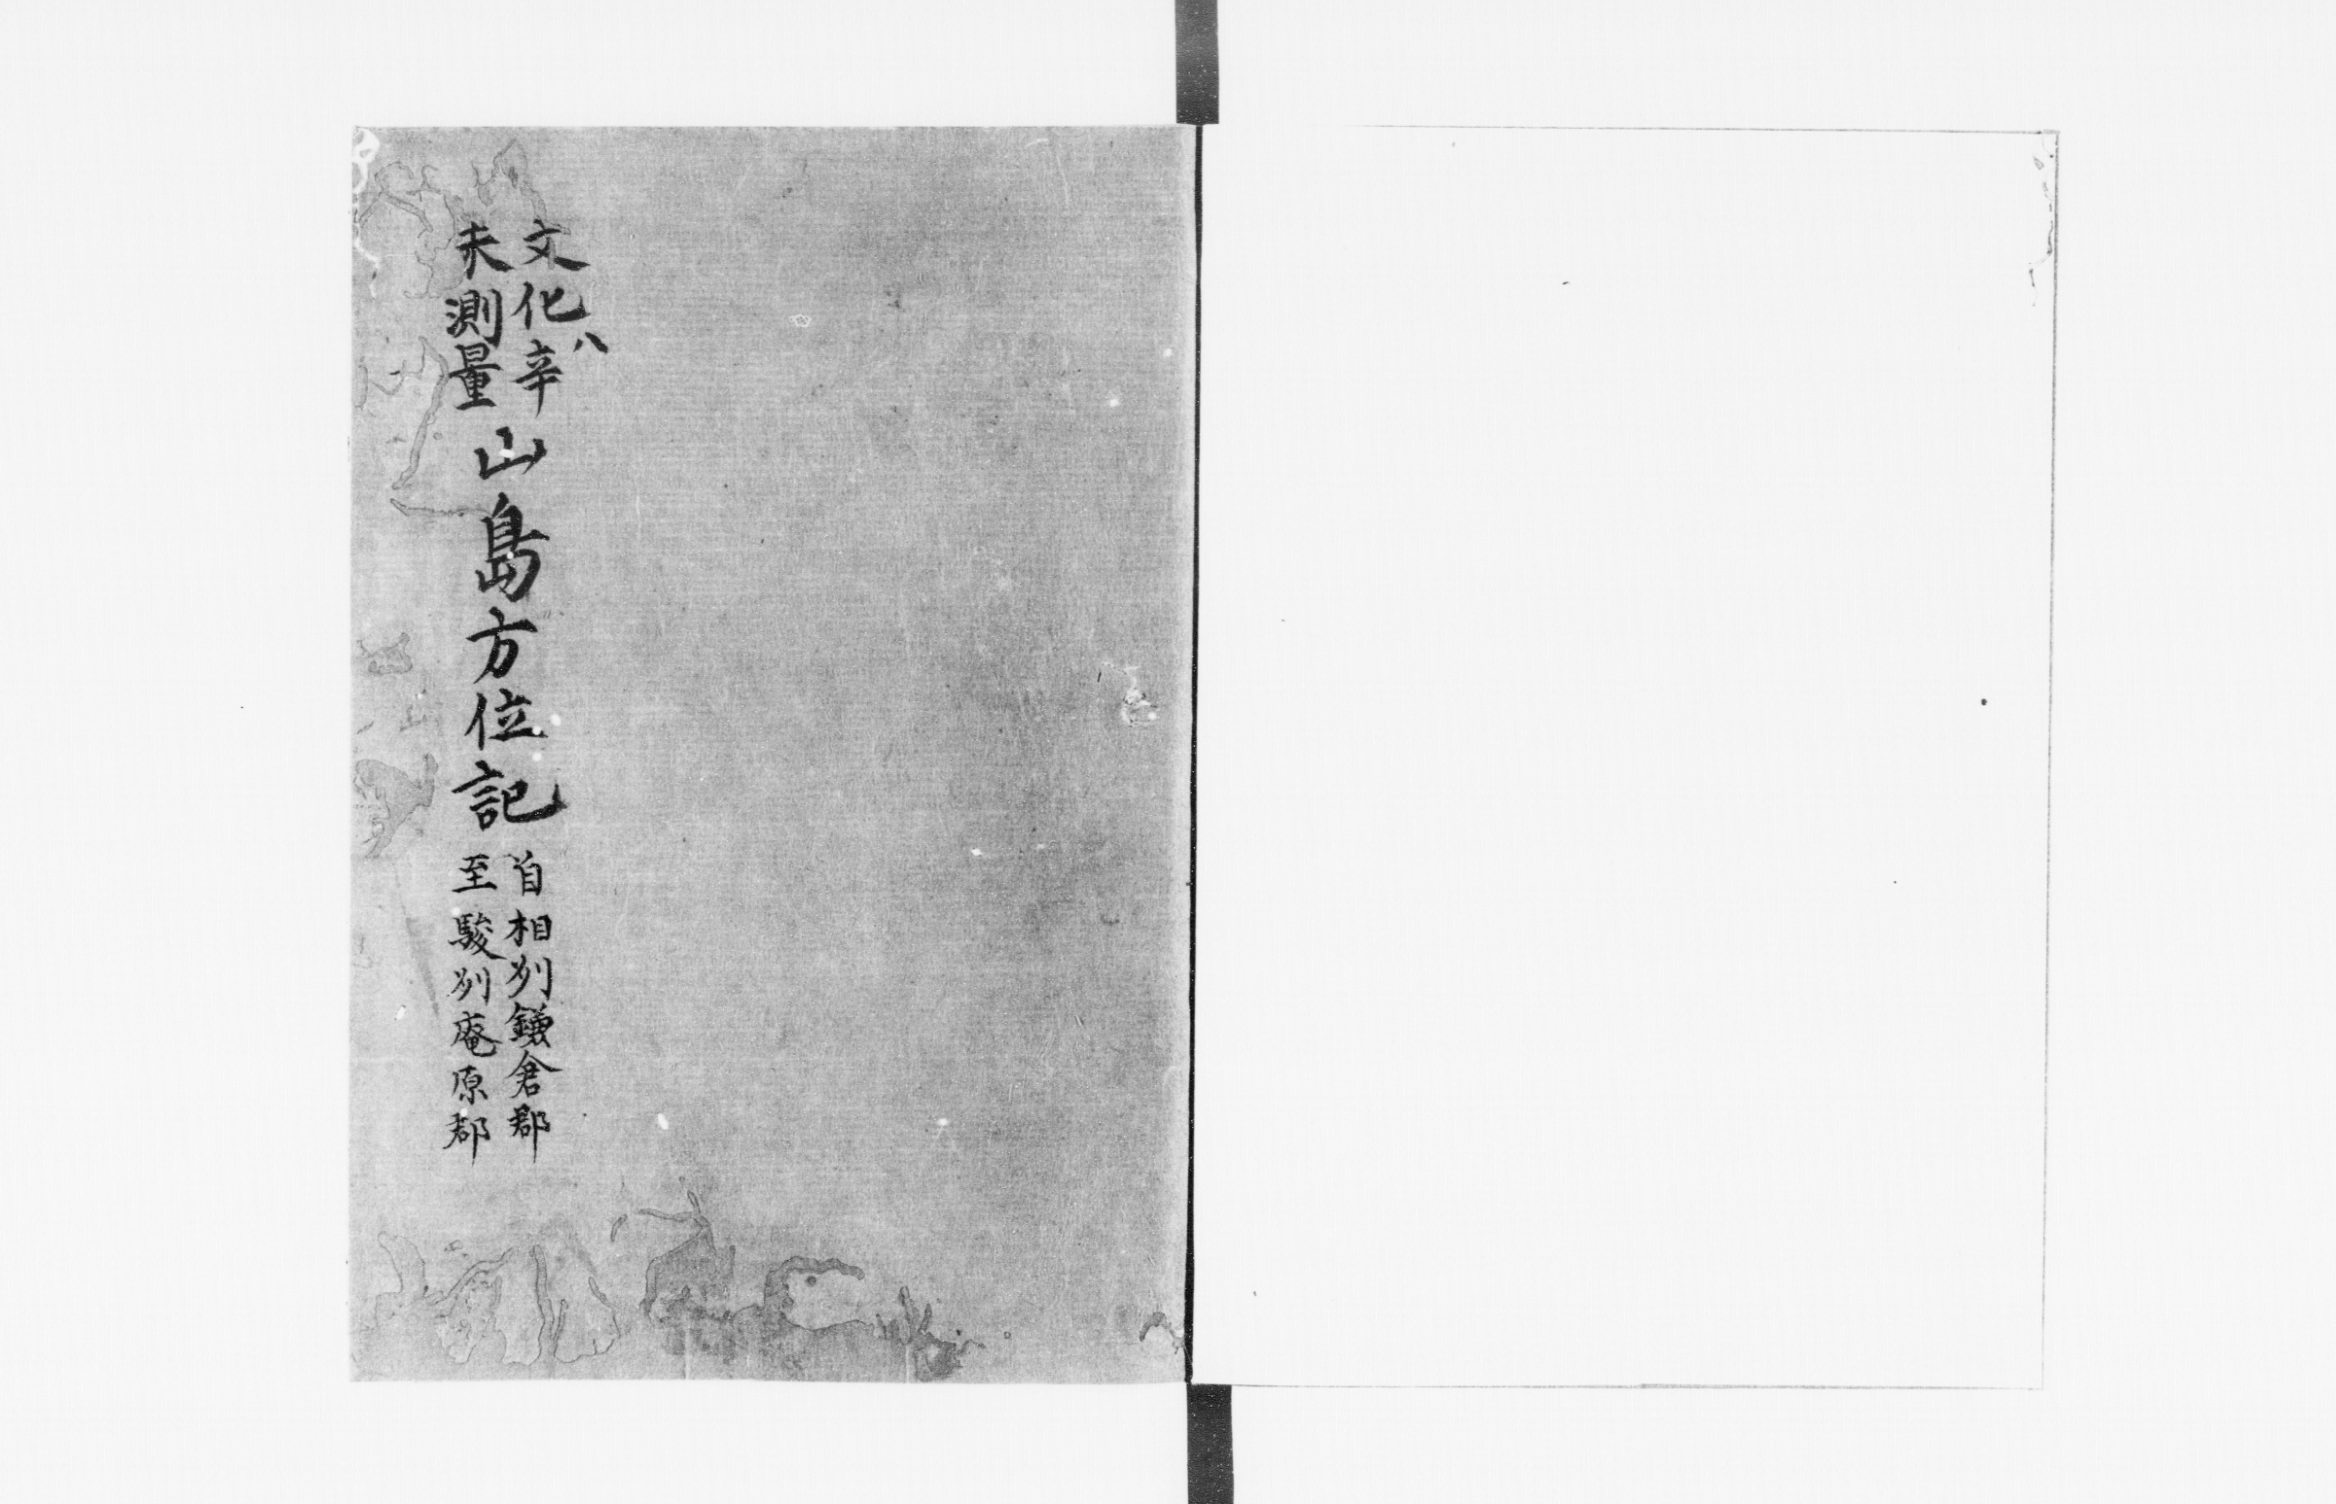 文化八辛
未測量
山島方位記
自相刕鎌倉郡
至駿刕庵原郡